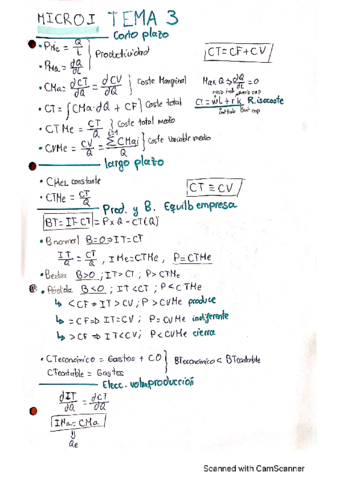 MICRO I TEMA 3
Corto plazo
• PMe = Q/L
• PMa = dQ/dL
} Productividad
CT = CF + CV
• CMa = dCT/dQ = dCV/dQ } Coste Marginal
Max Q → dQ/dL = 0
• CT = ∫CMa·dQ + CF } Coste total
CT = wL + rK R. isocoste
• CTMe = CT/Q } Coste total medio
• CVMe = CV/Q = ΣCMai/Q } Coste variable medio
largo plazo
• constante
CT ≡ CV
• CTMe = CT/Q
Prod. y B. Equilb empresa
BT = IT - CT = P x Q - CT(Q)
• B normal B=0 ⇒ IT=CT
IT/Q = CT/Q , IMe=CTMe, P=CTMe
• Bextra B>0 ; IT>CT ; P>CTMe
• Pérdida B<0 ; IT<CT ; P<CTMe
↳ <CF ⇒ IT>CV ; P>CVMe produce
↳ =CF ⇒ IT=CV ; P=CVMe indiferente
↳ >CF ⇒ IT<CV ; P<CVMe cierra
• CTeconómico = Gastos + CO
CTcontable = Gastos
} BTeconómico < BTcontable
Elecc. volm producción
dIT/dQ = dCT/dQ
IMa = CMa
Qe
Scanned with CamScanner